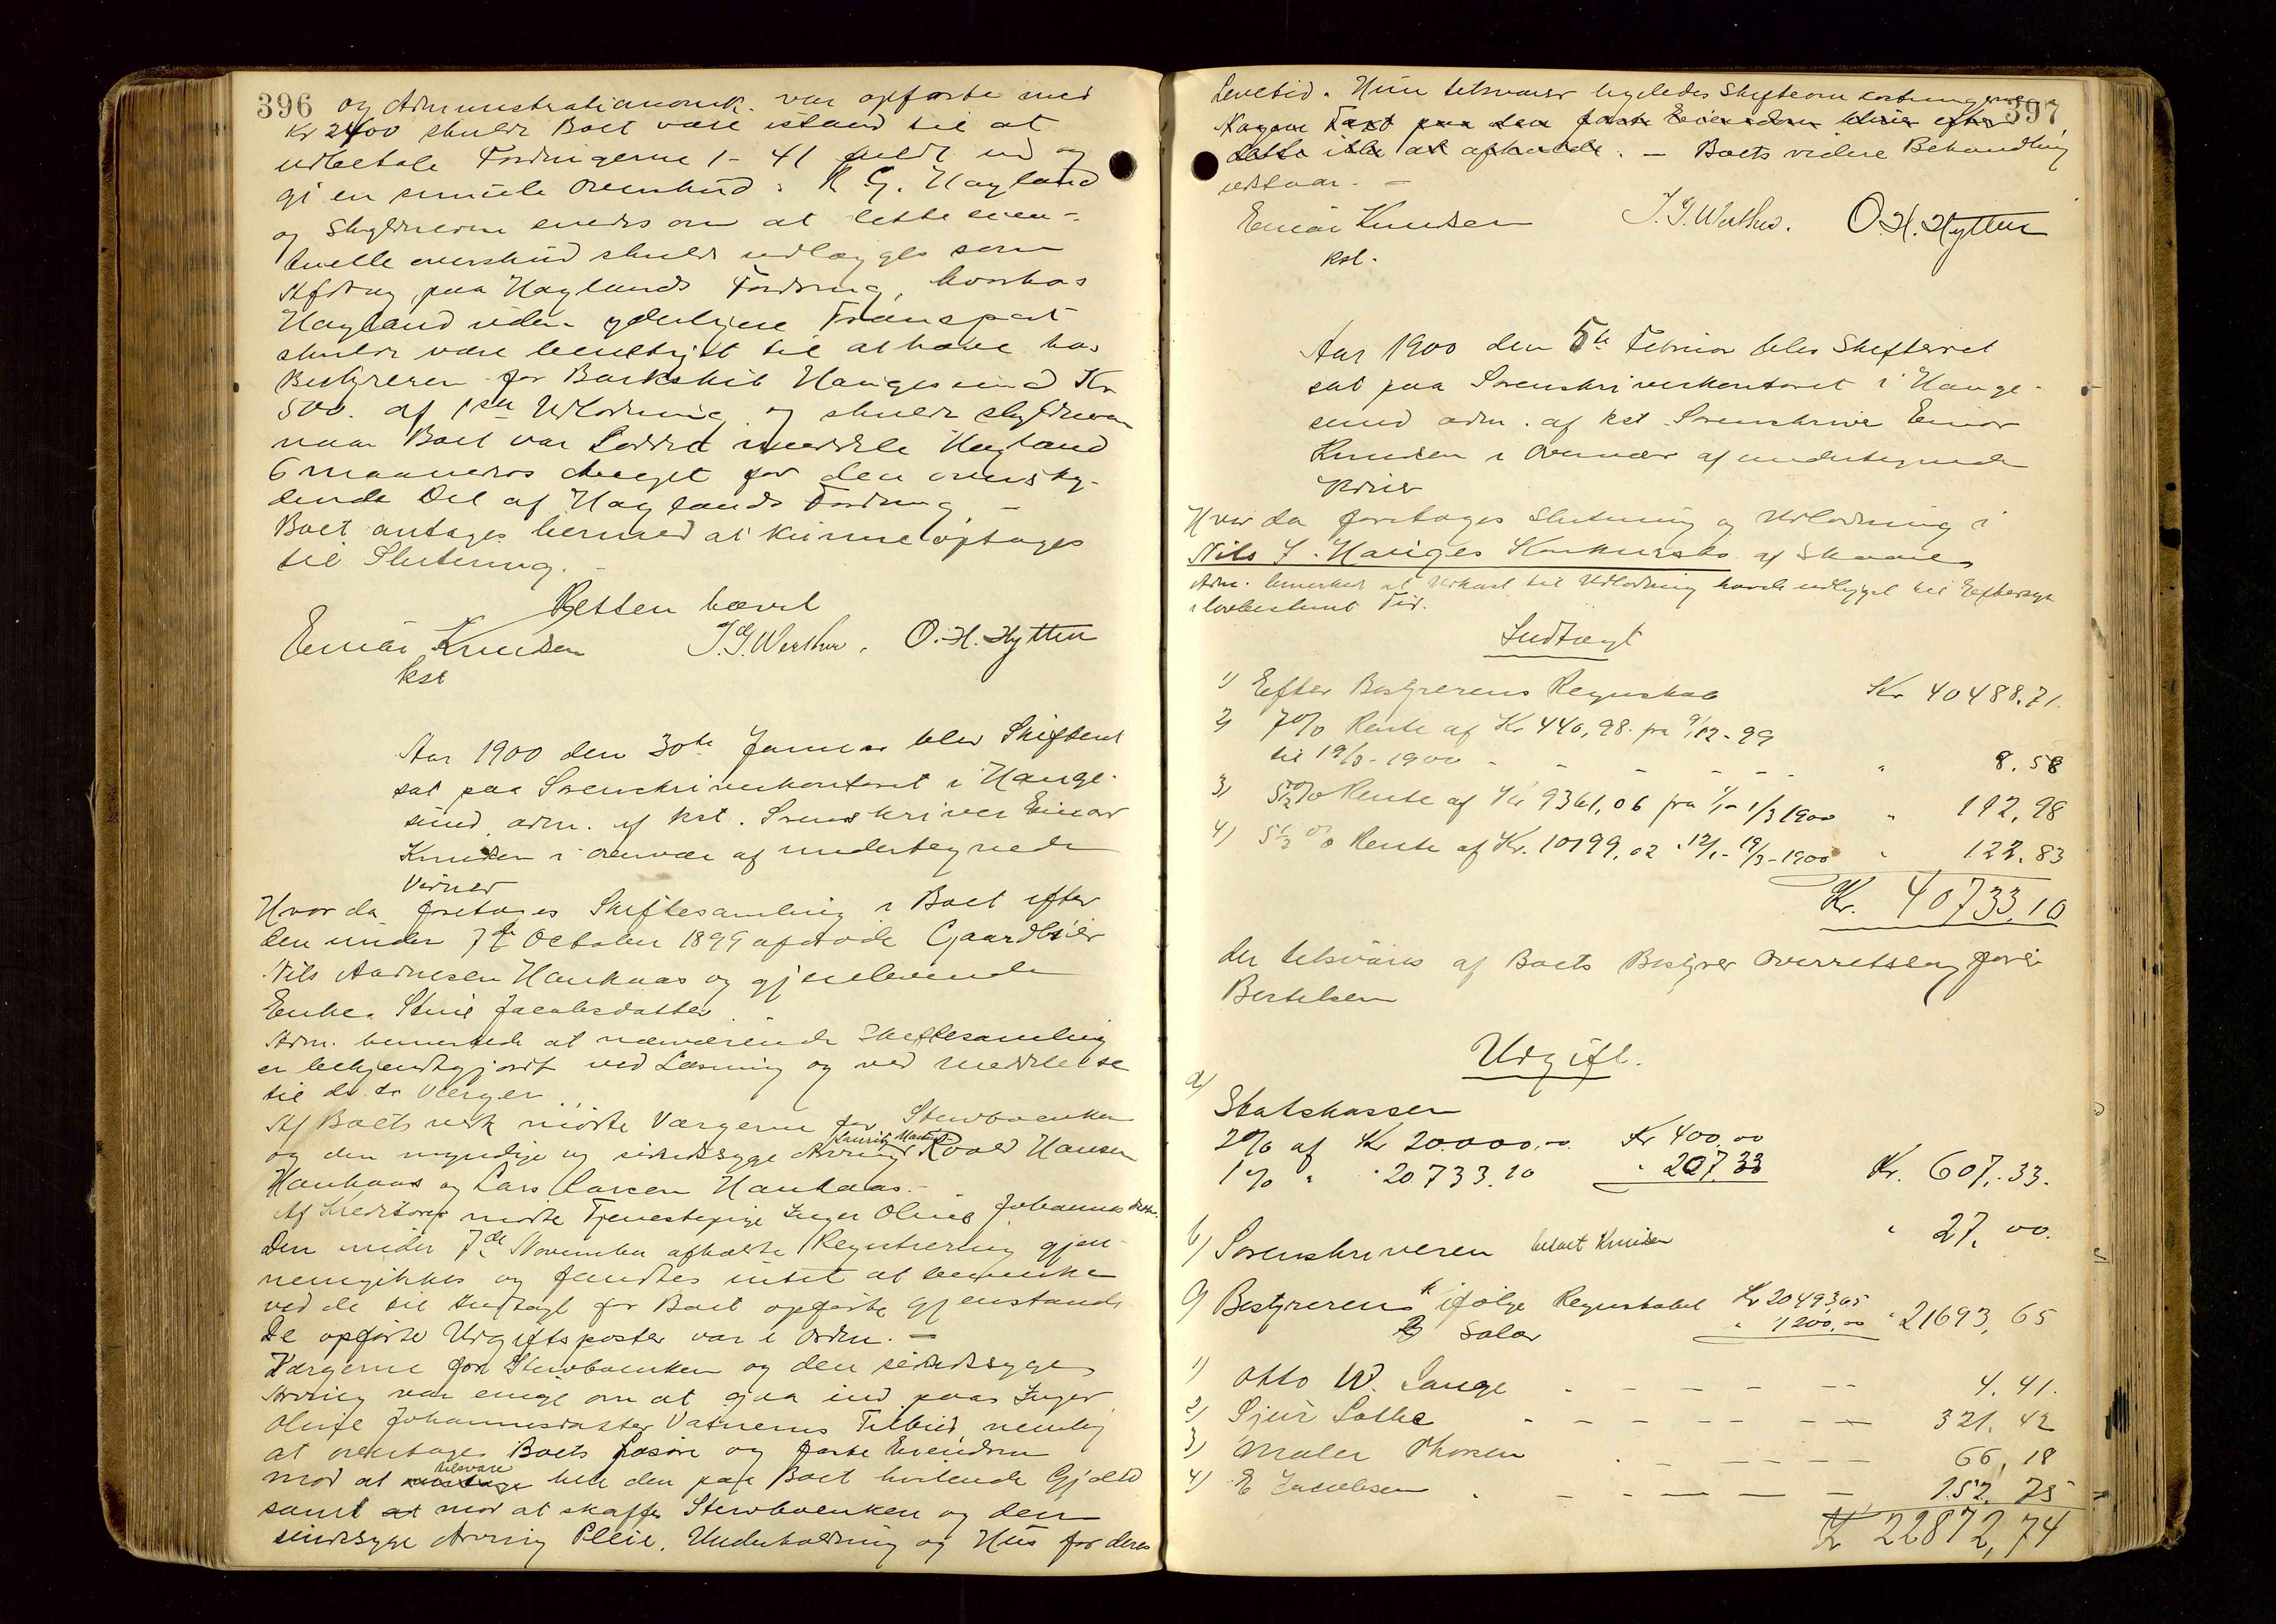 396 og Administrationsomk. var opførte med
Kr 2400 skulde Boet være istand til at
udbetale Fordringerne 1 - 41 fuldt ud og
gi en smule overskud. K. G. Hagland
og Skyldneren enedes om at dette even-
tuelle overskud skulde udlægges som
Afdrag paa Haglands Fordring, hvorhos
Hagland uden yderligere Transport
skulde være berettiget til at hæve hos
Bestyreren for Barkskib Haugesund Kr
500. af 1ste Udlodning og skulde skyldneren
naar Boet var sluttet meddele Hagland
6 maaneders accept for den oversky-
dende Del af Haglands Fordring. -
Boet antages hermed at kunne optages
til Slutning. -
Retten hævet
Einar Knudsen J. G. Werther. O. H. Hytten
kst
Aar 1900 den 30te Januar blev Skifteret
sat paa Sorenskriverkontoret i Hauge-
sund adm. af kst. Sorenskriver Einar
Knudsen i Overvær af undertegnede
Vidner
Hvorda foretoges Skiftesamling i Boet efter
den under 7de October 1899 afdøde Gaardbruger
Nils Andresen Haukaas og gjenlevende
Enke Stine Jacobsdatter
Adm. bemerkede at nærværende Skiftesamling
er bekjendtgjordt ved Læsning og ved Meddelelse
til de to Værger.
Af Boets vedk mødte Værgerne for Stervboenken
og den myndige og sindssyge Arving Lauritz Martin Roald Hansen
Haukaas og Lars Larsen Haukaas. -
Af Kreditorer mødte Tjenestepige Inger Oline Johannesdatter.
Den under 7de November afholdte Registrering gjen-
nemgikkes og fandtes intet at bemerke
ved de til Indtægt for Boet opførte gjenstande
De opførte Udgiftsposter var i Orden. -
Værgerne for Stervboenken og den sindssyge
Arving var enige om at gaa ind paa Inger
Oline Johannesdatter Vatnems Tilbud, nemlig
at overtage Boets Løsøre og faste Eiendom
mod at tilsvare hele den paa Boet hvilende Gjæld
samt at mod at skaffe Stervboenken og den
sindssyge Arving Pleie, Underholdning og Hus for deres
397
Levetid. Hun tilsvarer ligeledes Skifteomkostningerne.
Nogen Taxt paa den faste Eiendom bliver efter
dette ikke at afholde. - Boets videre Behandling
udstaar. -
Einar Knudsen J. G. Werther. O. H. Hytten
kst.
Aar 1900 den 5te Februar blev Skifteret
sat paa Sorenskriverkontoret i Hauge-
sund adm. af kst Sorenskriver Einar
Knudsen i Overvær af undertegnede
Vidner
Hvor da foretoges Slutning og Udlodning i
Nils J. Hauges Konkursbo af Skaare
Adm. bemerkede at Udkast til Udlodning havde udligget til Eftersyn
i lovbestemt Tid.
Indtægt
1) Efter Bestyrerens Regnskab Kr 40488.71.
2) 7% Rente af Kr 440,98. fra 9/12-99
til 19/3-1900 - - - - - - " 8.58
3) 5½% Rente af Kr 9361,06 fra 1/1 - 1/3 1900 " 112,98
4) 5½% Rente af Kr. 10199,02 " 12/1 - 19/3-1900 " 122.83
Kr. 40733,10
der tilsvares af Boets Bestyrer Overretssagfører
Bertelsen
Udgift.
a) Statskassen
2% af Kr 20.000,00. Kr 400.00
1% " " 20733.10 " 207.33 Kr. 607,.33.
b) Sorenskriveren betalt Knudsen " 27,00.
c) Bestyreren ifølge Regnskabet Kr 20493,65
Salar " 1200,00 " 21693,65
1) Otto W. Lange - - - - - - 4.41.
2) Sjur Lothe - - - - - - 321.42
3) Maler Thorsen - - - - - 66,18
4) E Jacobsen - - - - - - 152.75
Kr 22872,74